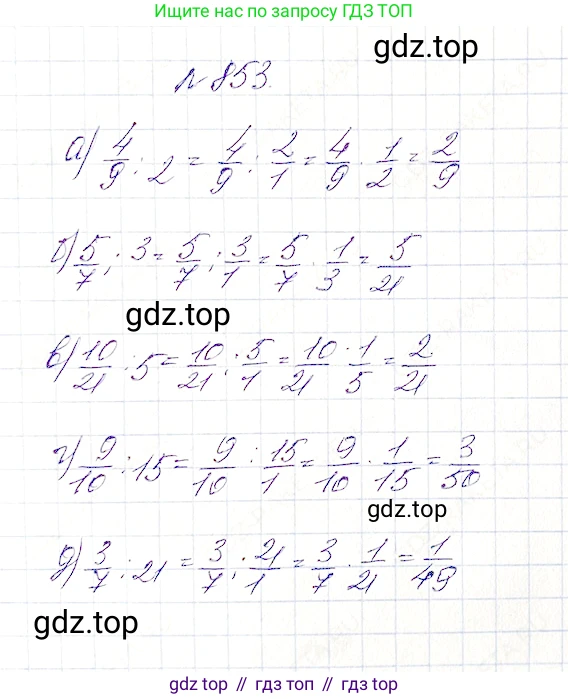 Ищите нас по запросу ГДЗ ТОП
gdz.top
№ 853.
а) 4/9 : 2 = 4/9 : 2/1 = 4/9 · 1/2 = 2/9
б) 5/7 : 3 = 5/7 : 3/1 = 5/7 · 1/3 = 5/21
gdz.top
в) 10/21 : 5 = 10/21 : 5/1 = 10/21 · 1/5 = 2/21
г) 9/10 : 15 = 9/10 : 15/1 = 9/10 · 1/15 = 3/50
gdz.top
д) 3/7 : 21 = 3/7 : 21/1 = 3/7 · 1/21 = 1/49
gdz.top
gdz.top // гдз топ // gdz top